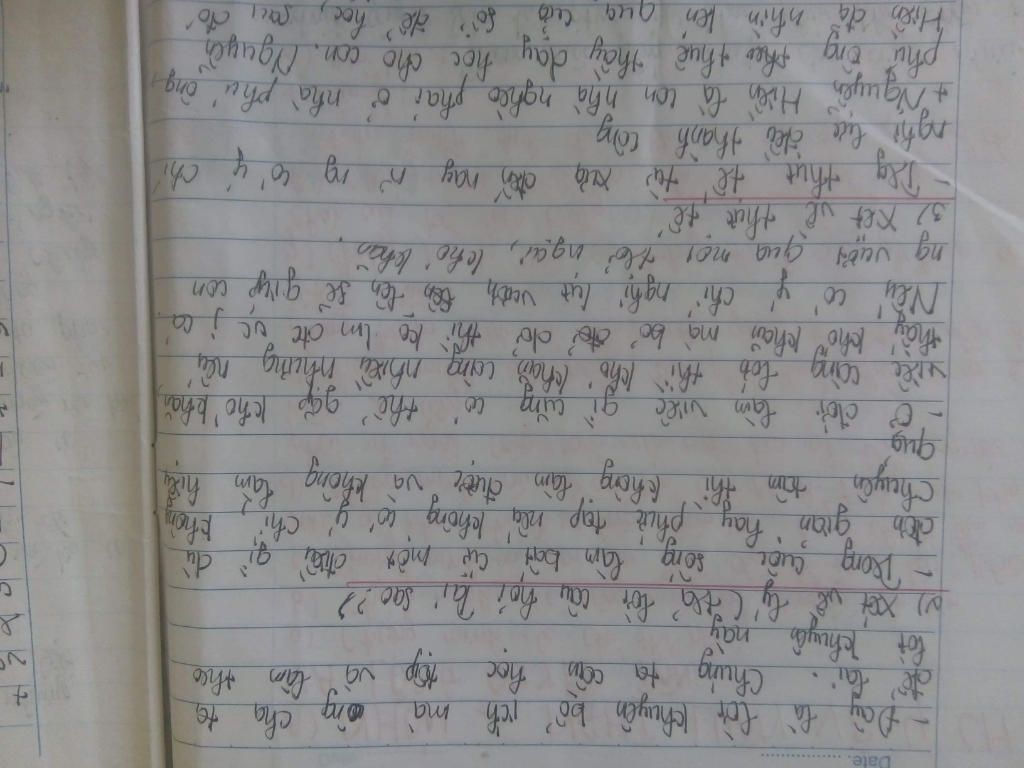 Date
- Đây là lời khuyên bổ ích mà ông cha ta
để lại. Chúng ta cần học tập và làm theo
lời khuyên này
2) Xét về lý (trả lời câu hỏi tại sao?)
- Trong cuộc sống làm bất cứ một điều gì dù
đơn giản hay phức tạp nếu không có ý chí, không
chuyên tâm thì không làm được và không làm hiệu
quả
- Ở đời làm việc gì cũng có thể gặp khó khăn,
việc càng lớn thì khó khăn càng nhiều nhưng nếu
thấy khó khăn mà bỏ dở thì ko lm đc vc j cả
Nếu có ý chí nghị lực vươn lên sẽ giúp con
ng vượt qua mọi trở ngại, khó khăn.
3) Xét về thực tế
- Trg thực tế từ xưa đến nay n` ng có ý chí
nghị lực đều thành công
+ Nguyễn Hiền là con nhà nghèo phải ở nhà phú ông,
phú ông thuê thầy dạy học cho con. Nguyễn
Hiền đã nhìn lén qua cửa sổ để học, sau đó